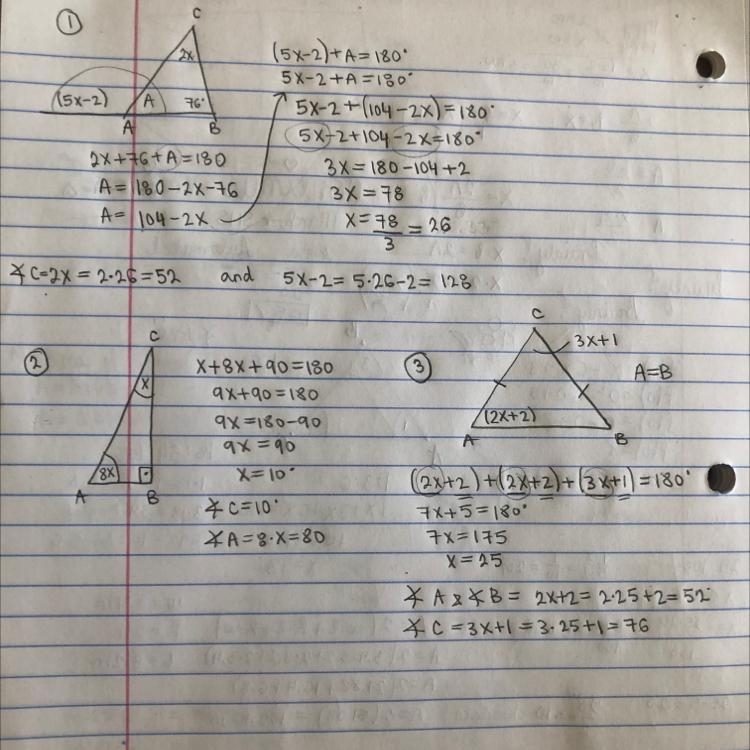 1
C
2x
(5x-2)
A
76°
A
B
2x+76+A=180
A=180-2x-76
A= 104-2x
(5x-2)+A=180°
5x-2+A=180°
5x-2+(104-2x)=180°
5x-2+104-2x=180°
3x=180-104+2
3x=78
x=78/3=26
∡C=2x=2·26=52 and 5x-2=5·26-2=128
2
C
x
8x
A
B
x+8x+90=180
9x+90=180
9x=180-90
9x=90
x=10°
∡C=10°
∡A=8·x=80
3
C
3x+1
A=B
(2x+2)
A
B
(2x+2)+(2x+2)+(3x+1)=180°
7x+5=180°
7x=175
x=25
∡ A & ∡ B = 2x+2=2·25+2=52
∡ C=3x+1=3·25+1=76